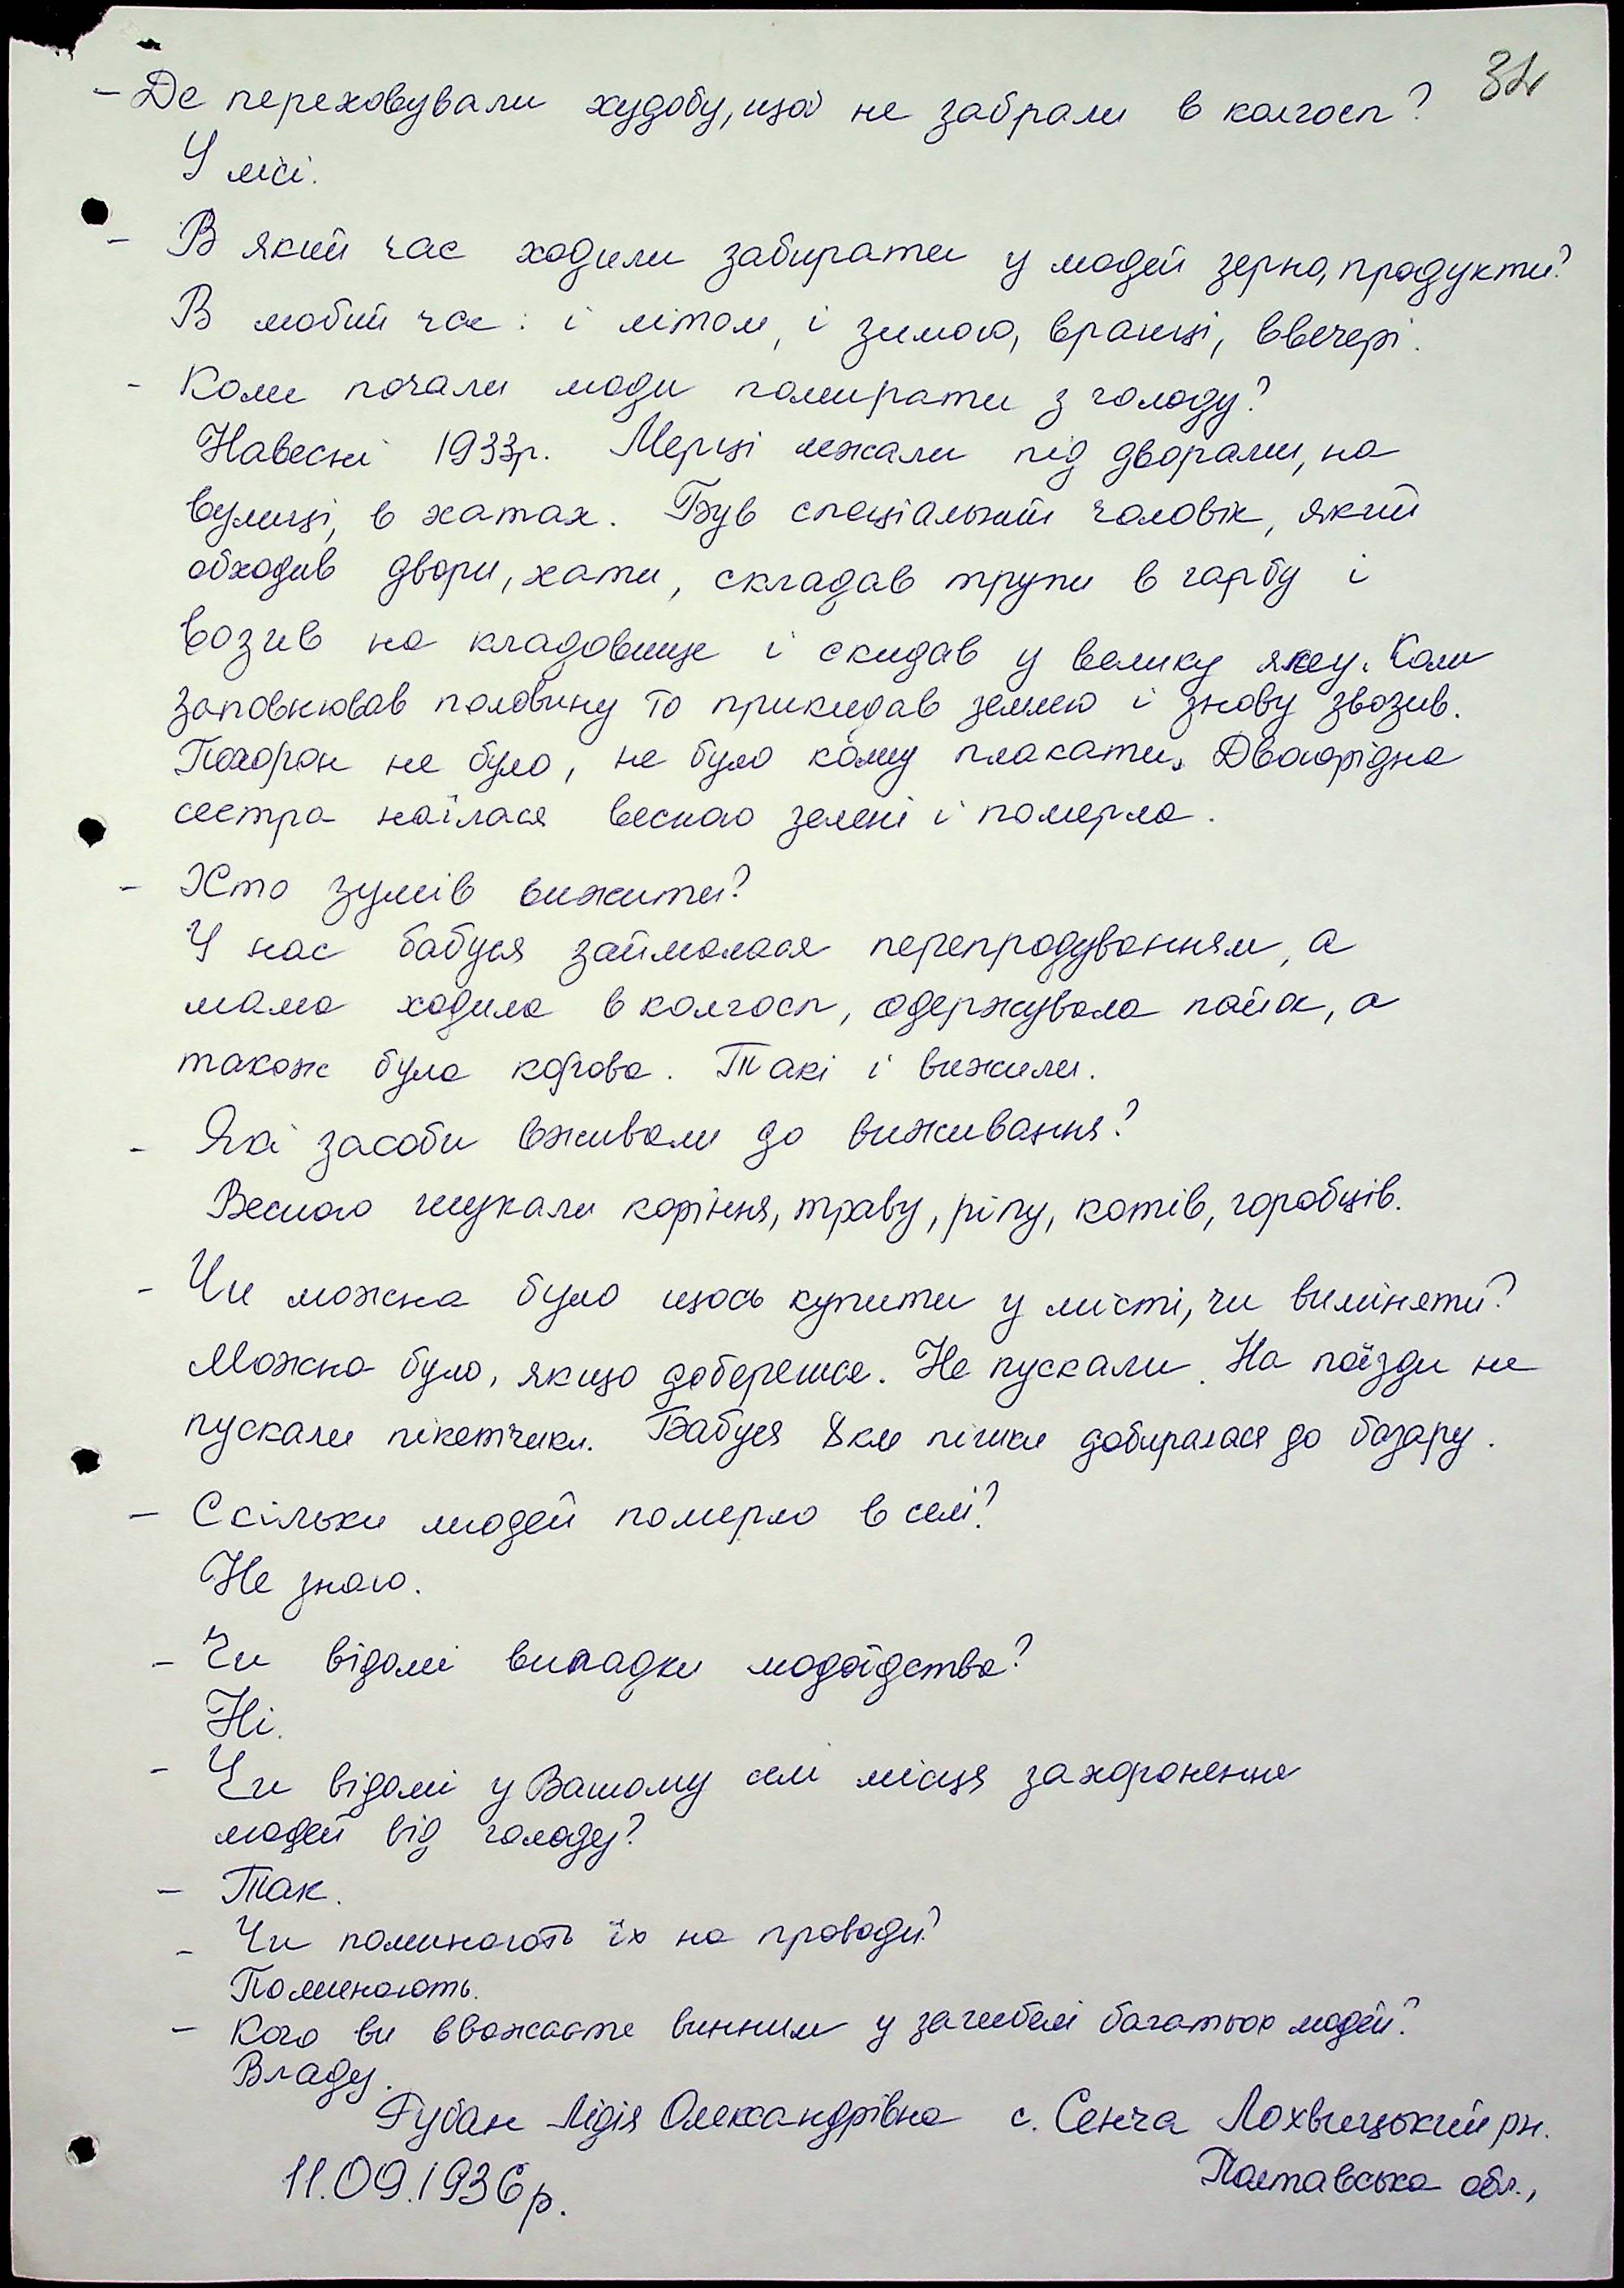 32
- Де переховували худобу, щоб не забрали в колгосп?
У лісі.
- В який час ходили забирати у людей зерно, продукти?
В любий час: і літом, і зимою, вранці, ввечері.
- Коли почали люди помирати з голоду?
Навесні 1933р. Мерці лежали під дворами, на
вулиці, в хатах. Був спеціальний чоловік, який
обходив двори, хати, складав трупи в гарбу і
возив на кладовище і скидав у велику яму. Коли
заповнював половину то прикидав землею і знову звозив.
Похорон не було, не було кому плакати. Двоюрідна
сестра наїлася весною зелені і померла.
- Хто зумів вижити?
У нас бабуся займалася перепродуванням, а
мама ходила в колгосп, одержувала пайок, а
також була корова. Такі і вижили.
- Які засоби вживали до виживання?
Весною шукали коріння, траву, ріпу, котів, горобців.
- Чи можна було щось купити у місті, чи виміняти?
Можна було, якщо доберешся. Не пускали. На поїзди не
пускали пікетчики. Бабуся 8км пішки добиралася до базару.
- Скільки людей померло в селі?
Не знаю.
- Чи відомі випадки людоїдства?
Ні.
- Чи відомі у Вашому селі місця захоронення
людей від голоду?
- Так.
- Чи поминають їх на проводи?
Поминають.
- Кого ви вважаєте винним у загибелі багатьох людей?
Владу.
Губан Лідія Олександрівна с. Сенча Лохвицький рн.
11.09.1936р. Полтавська обл.,